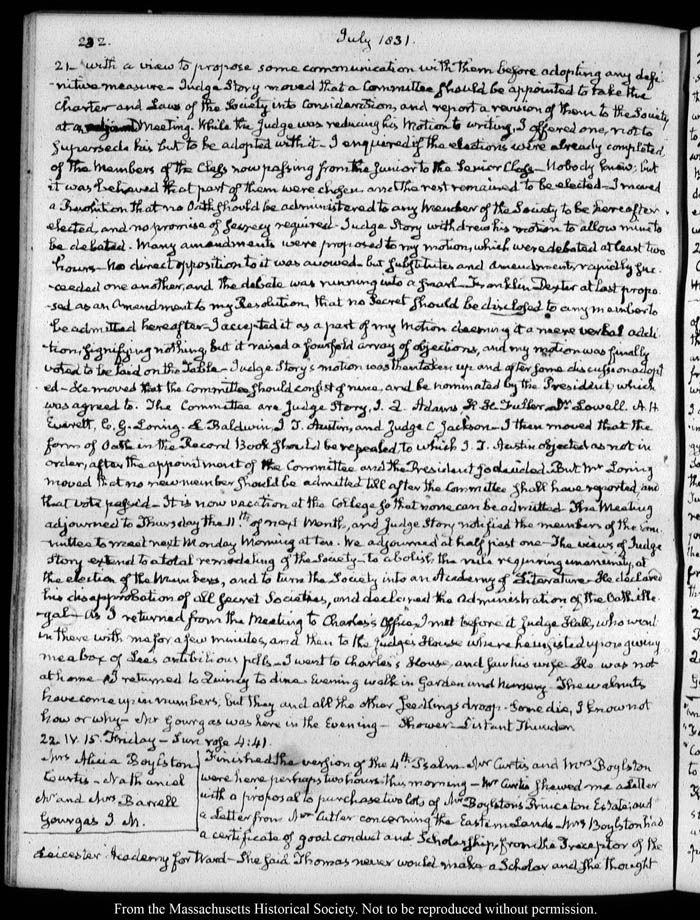 232.
July 1831.
21. with a view to propose some communication with them before adopting any defi-
-nitive measure – Judge Story moved that a Committee should be appointed to take the
Charter and Laws of the Society into Consideration, and report a revision of them to the Society
at a Meeting. While the Judge was reducing his Motion to writing, I offered one, not to
supersede his but to be adopted with it – I enquired if the elections were already completed
of the Members of the Class now passing from the Junior to the Senior Class – Nobody knew; but
it was believed that part of them were chosen and the rest remained to be elected – I moved
a Resolution that no Oath should be administered to any Member of the Society to be hereafter
elected, and no promise of secrecy required – Judge Story withdrew his motion to allow mine to
be debated. Many amendments were proposed to my motion, which were debated at least two
hours – No direct opposition to it was avowed – but substitutes and amendments rapidly suc-
-ceeded one another, and the debate was running into a snarl – Franklin Dexter at last propo-
-sed as an Amendment to my Resolution that no Secret should be disclosed to any member to
be admitted hereafter – I accepted it as a part of my Motion deeming it a mere verbal addi-
-tion, signifying nothing, but it raised a fourfold array of objections, and my motion was finally
voted to be laid on the Table – Judge Story's motion was then taken up and after some discussion adopt
ed – He moved that the Committee should consist of nine, and be nominated by the President, which
was agreed to. The Committee are Judge Story, J. Q. Adams, Fuller, Lowell, A. H.
Everett, C. G. Loring, Baldwin, J. T. Austin, and Judge C. Jackson – I then moved that the
form of Oath in the Record Book should be repealed to which J. T. Austin objected as not in
order, after the appointment of the Committee and the President so decided. But Mr Loring
moved that no new member should be admitted till after the Committee shall have reported and
that vote passed – It is now vacation at the College so that none can be admitted. The Meeting
adjourned to Thursday the 11th of next Month, and Judge Story notified the members of the Com-
-mittee to meet next Monday Morning at ten. We adjourned at half past one – The views of Judge
Story extend to a total remodeling of the Society – to abolish the rule requiring unanimity at
the election of the Members, and to turn the Society into an Academy of Literature – He declared
his disapprobation of all Secret Societies, and declared the Administration of the Oath ille-
-gal – As I returned from the Meeting to Charles's Office I met before it Judge Hall, who went
in there with me for a few minutes, and then to the Judge's House where he insisted upon giving
me a box of Lees antibilious pills – I went to Charles's House, and saw his wife. He was not
at home – I returned to Quincy to dine. Evening walk in Garden and Nursery – The walnuts
have come up in numbers; but they and all the other seedlings droop – Some die, I know not
how or why – Mr Gourgas was here in the Evening – Shower – Distant Thunder
22. IV. 15. Friday – Sun rose 4:41.
Mrs Alicia Boylston
Curtis – Nathaniel
Mr and Mrs Barrell
Gourgas J. M.
Finished the version of the 4th Psalm – Mr Curtis and Mrs Boylston
were here perhaps two hours this morning – Mr Curtis shewed me a Letter
with a proposal to purchase two lots of Mr Boylston's Princeton Estate; and
a Letter from Mr Cutler concerning the Eastern Lands – Mrs Boylston had
a certificate of good conduct and Scholarship from the Preceptor of the
Leicester Academy for Ward – She said Thomas never would make a Scholar and she thought
From the Massachusetts Historical Society. Not to be reproduced without permission.